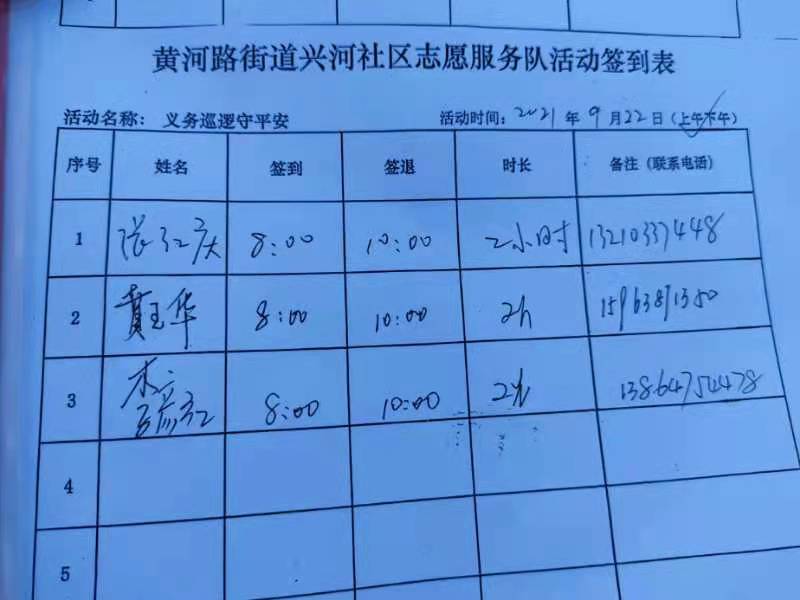 黄河路街道兴河社区志愿服务队活动签到表
活动名称： 义务巡逻守平安 活动时间：2021 年 9 月 22 日（上午下午）
序号 姓名 签到 签退 时长 备注（联系电话）
1 张红庆 8:00 10:00 2小时 13210337448
2 黄玉华 8:00 10:00 2h 15963891350
3 8:00 10:00 2h 13864754478
4
5